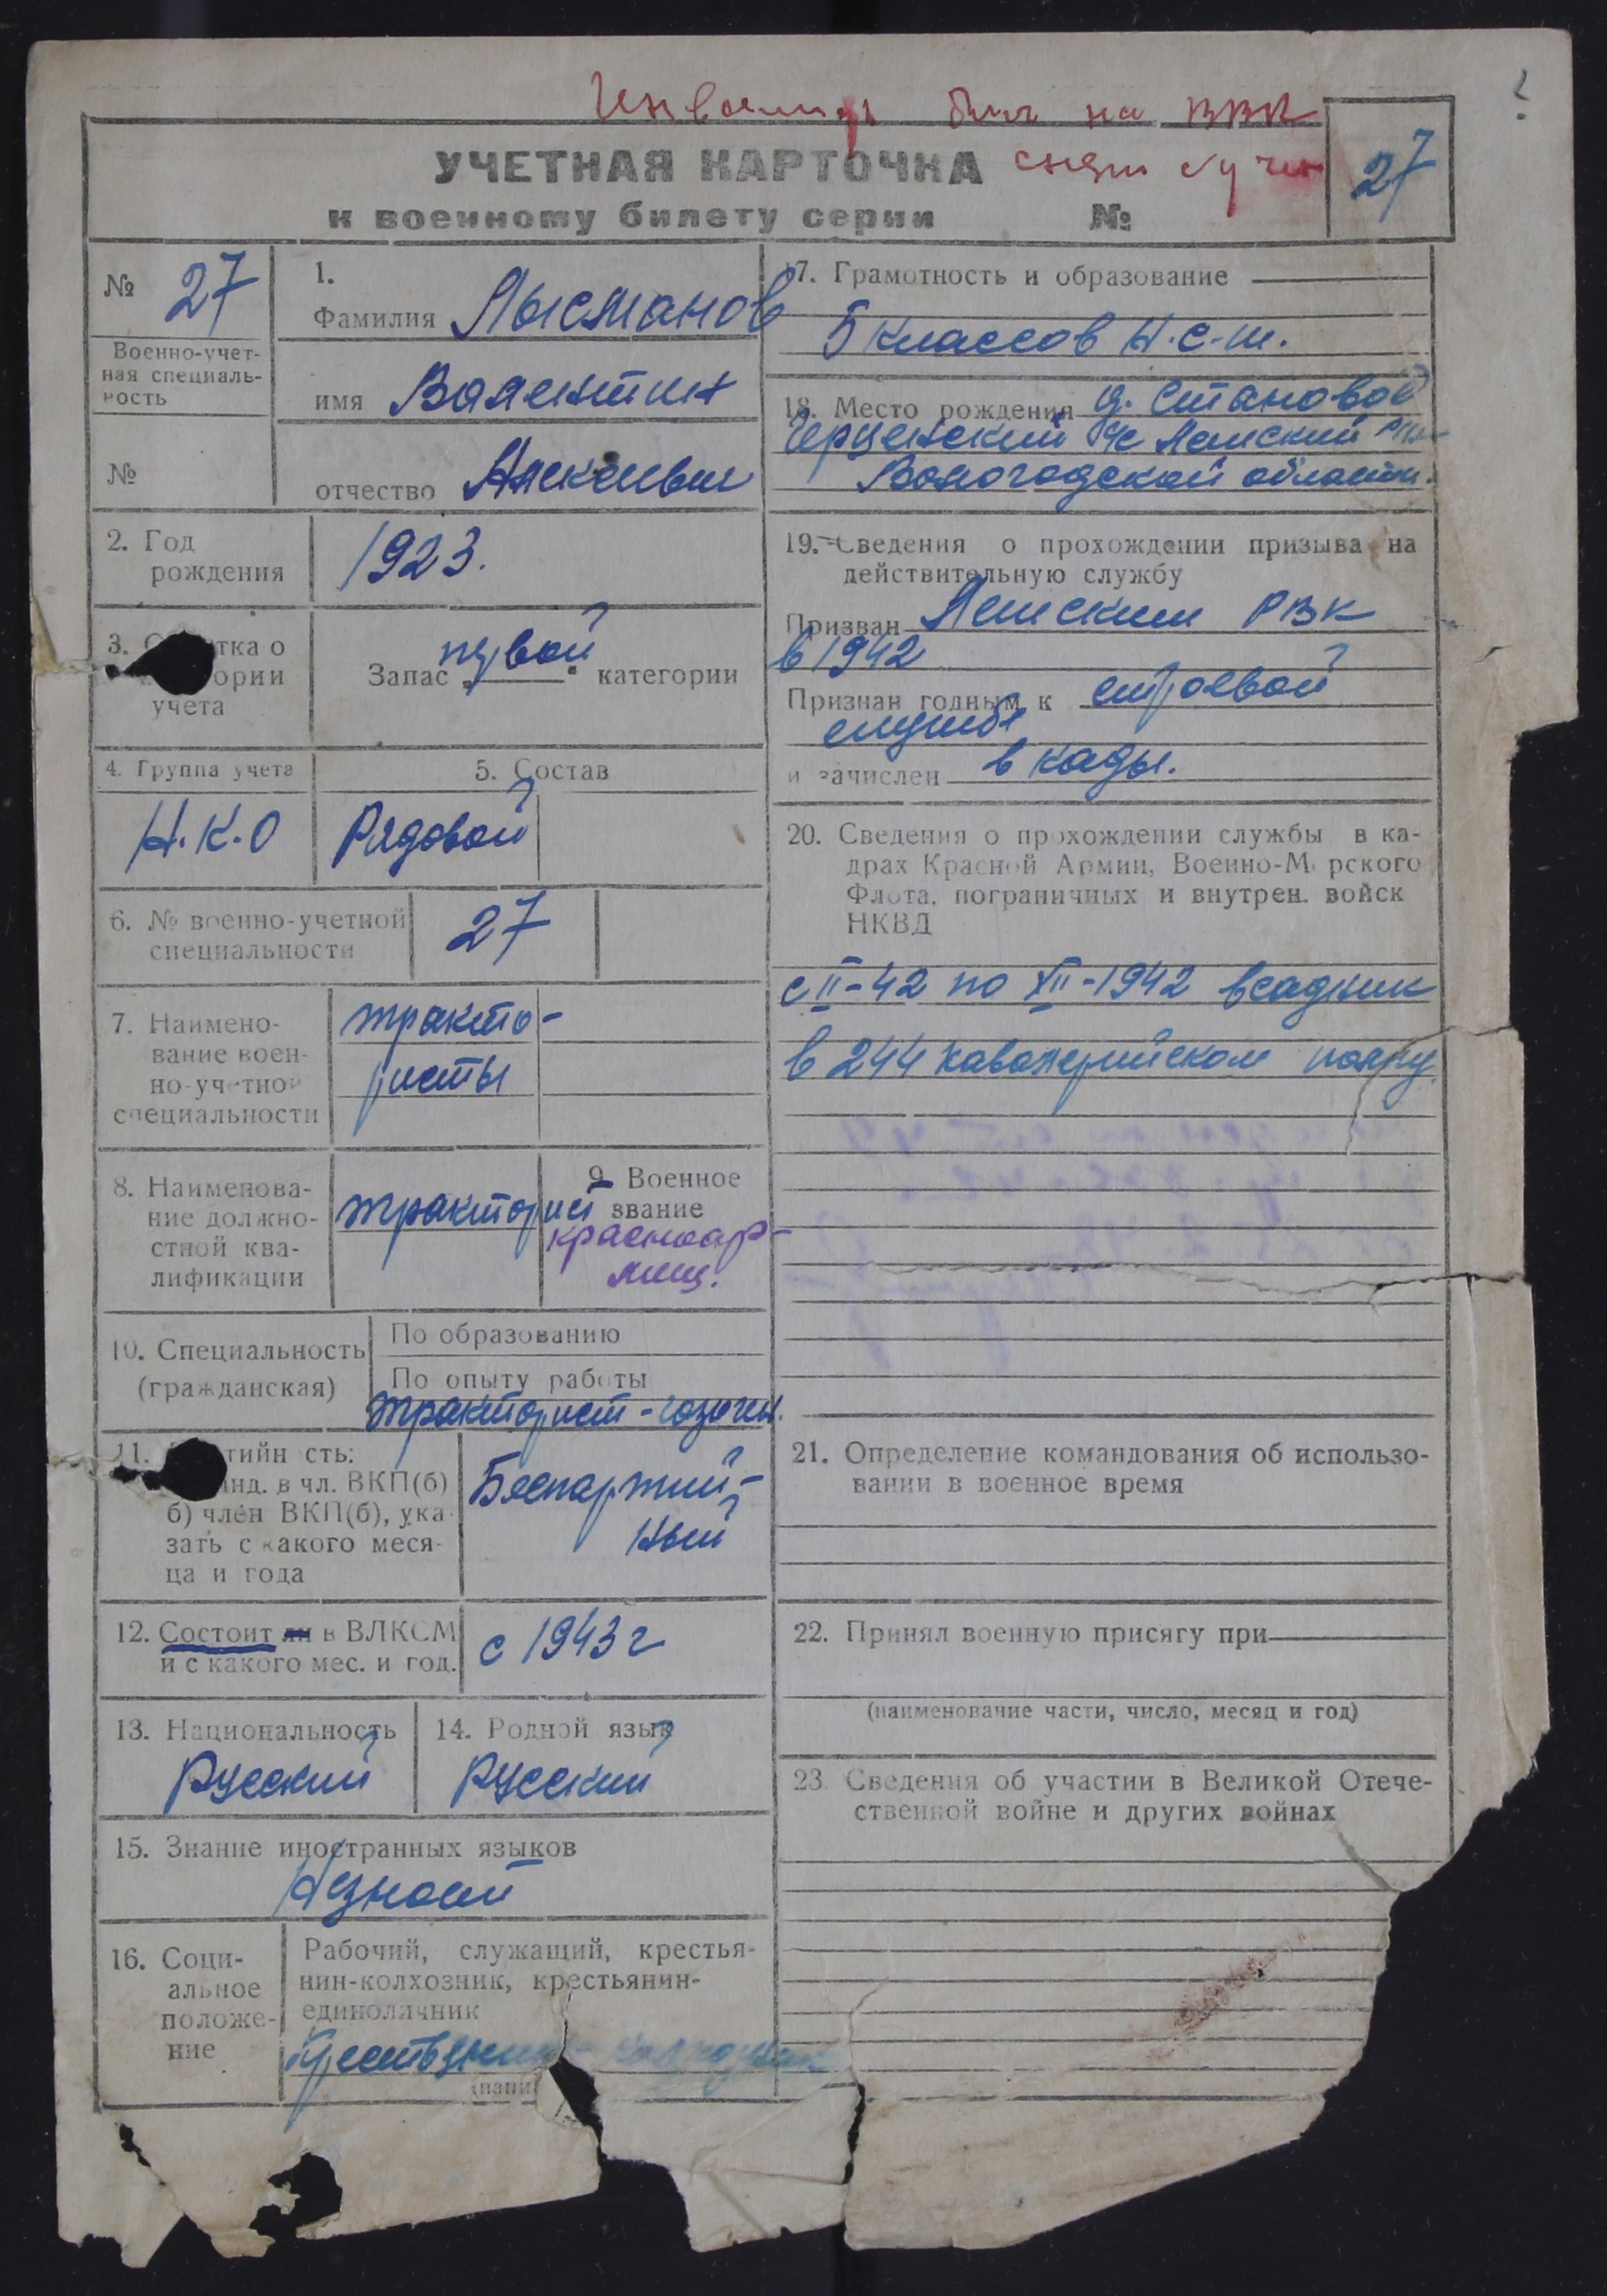 Инвалид был на ВВК
УЧЕТНАЯ КАРТОЧКА снят с учета
к военному билету серии №
27
№ 27
Военно-учет-
ная специаль-
ность
№
1.
Фамилия Лысманов
имя Валентин
отчество Алексеевич
2. Год
рождения
1923.
3. тка о
ории
учета
Запас „первой" категории
4. Группа учета
Н.К.О
5. Состав
Рядовой
6. № военно-учетной
специальности
27
7. Наимено-
вание воен-
но-учетной
специальности
тракто-
ристы
8. Наименова-
ние должно-
стной ква-
лификации
тракторист
9 Военное
звание
красноар-
меец.
10. Специальность
(гражданская)
По образованию
По опыту работы
тракторист-
11. тийн сть:
нд. в чл. ВКП(б)
б) член ВКП(б), ука-
зать с какого меся-
ца и года
Беспартий-
ный
12. Состоит ли в ВЛКСМ
и с какого мес. и год.
с 1943 г
13. Национальность
Русский
14. Родной язык
Русский
15. Знание иностранных языков
Незнает
16. Соци-
альное
положе-
ние
Рабочий, служащий, крестья-
нин-колхозник, крестьянин-
единоличник
Крестьянин-колхозник
(напи
17. Грамотность и образование
5 классов Н.С.Ш.
18. Место рождения д. Становое
с/с
Вологодской области.
19. Сведения о прохождении призыва на
действительную службу
Призван РВК
в 1942
Признан годным к строевой
службе
и зачислен в кады.
20. Сведения о прохождении службы в ка-
драх Красной Армии, Военно-М рского
Флота, пограничных и внутрен. войск
НКВД
с II-42 по XII-1942 всадник
в 244 кавалерийском полку.
21. Определение командования об использо-
вании в военное время
22. Принял военную присягу при
(наименование части, число, месяц и год)
23. Сведения об участии в Великой Отече-
ственной войне и других войнах